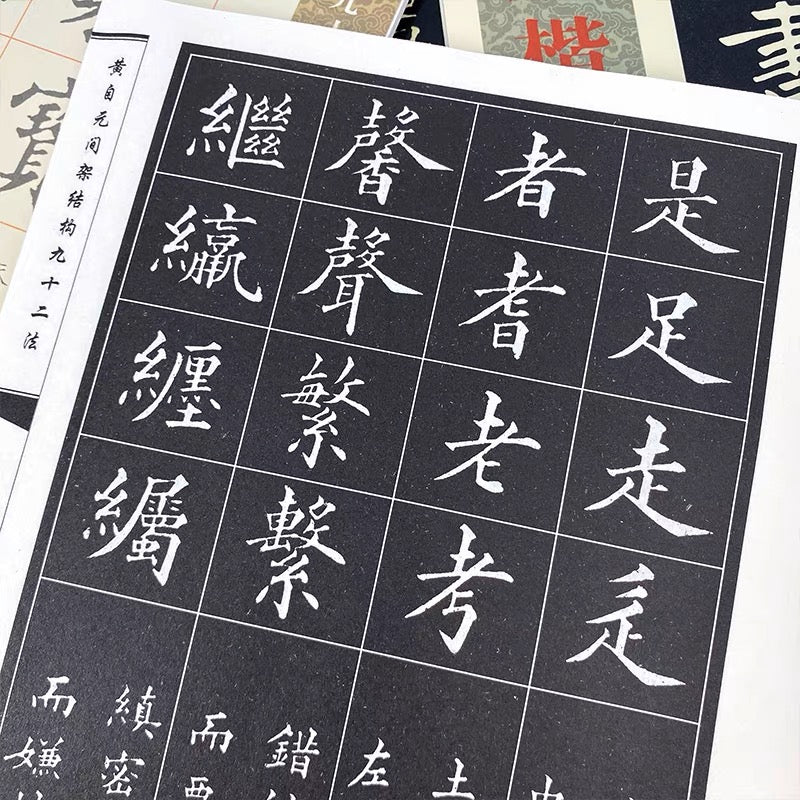 黄自元间架结构九十二法
是足走辵
者耆老考
馨聲繁繫
繼纏
土
左
錯
而
縝密
而嫌
楷
書